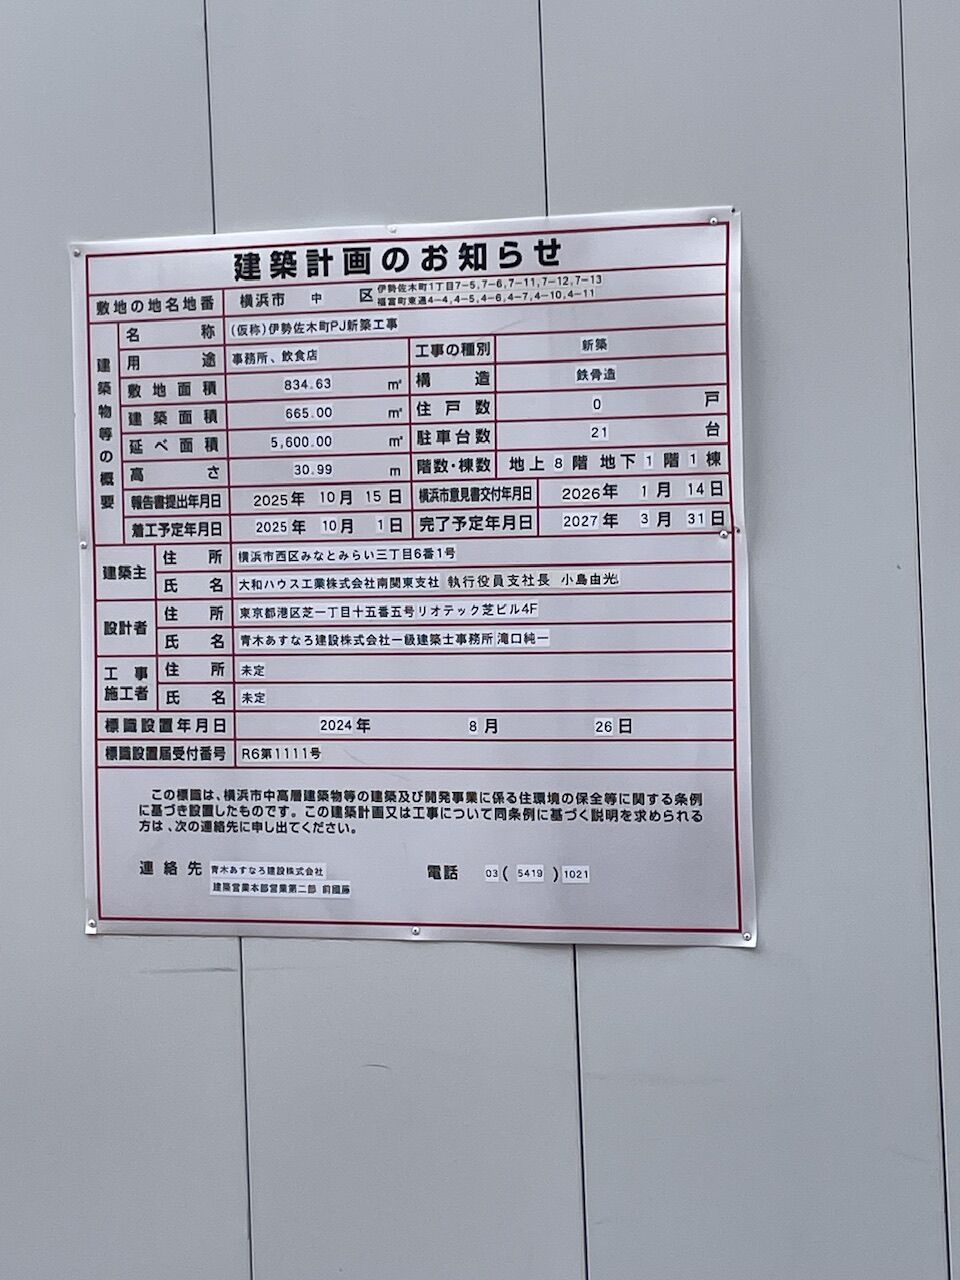 建築計画のお知らせ
敷地の地名地番 横浜市 中 区 伊勢佐木町1丁目7-5,7-6,7-11,7-12,7-13
福富町東通4-4,4-5,4-6,4-7,4-10,4-11
建築物等の概要
名称 (仮称)伊勢佐木町PJ新築工事
用途 事務所、飲食店 工事の種別 新築
敷地面積 834.63 ㎡ 構造 鉄骨造
建築面積 665.00 ㎡ 住戸数 0 戸
延べ面積 5,600.00 ㎡ 駐車台数 21 台
高さ 30.99 m 階数・棟数 地上 8 階 地下 1 階 1 棟
報告書提出年月日 2025年 10月 15日 横浜市意見書交付年月日 2026年 1月 14日
着工予定年月日 2025年 10月 1日 完了予定年月日 2027年 3月 31日
建築主 住所 横浜市西区みなとみらい三丁目6番1号
氏名 大和ハウス工業株式会社南関東支社 執行役員支社長 小島由光
設計者 住所 東京都港区芝一丁目十五番五号リオテック芝ビル4F
氏名 青木あすなろ建設株式会社一級建築士事務所 滝口純一
工事施工者 住所 未定
氏名 未定
標識設置年月日 2024年 8月 26日
標識設置届受付番号 R6第1111号
この標識は、横浜市中高層建築物等の建築及び開発事業に係る住環境の保全等に関する条例
に基づき設置したものです。この建築計画又は工事について同条例に基づく説明を求められる
方は、次の連絡先に申し出てください。
連絡先 青木あすなろ建設株式会社 電話 03(5419)1021
建築営業本部営業第二部